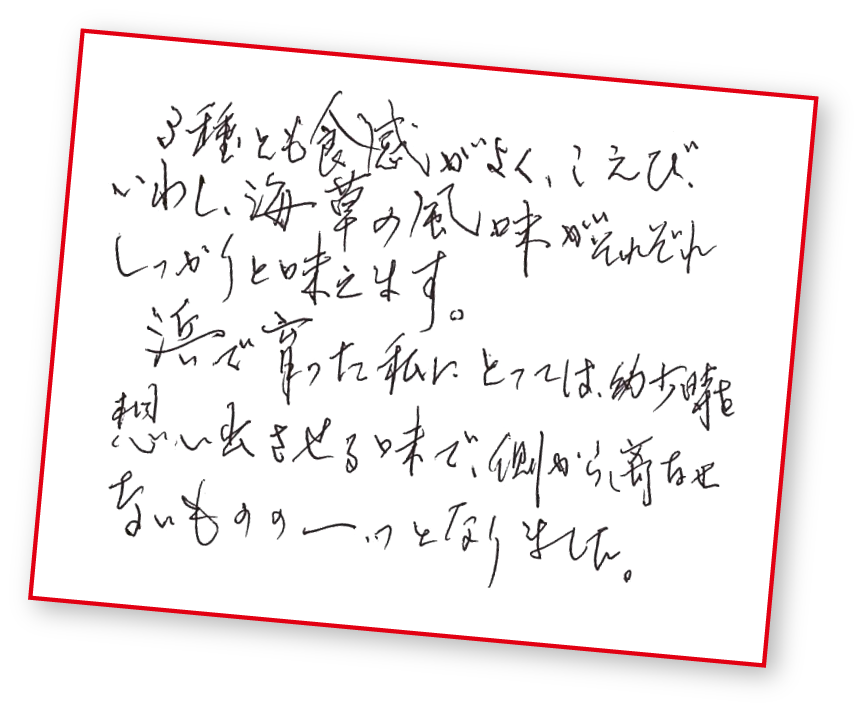 3種とも食感がよく、こえび、
いわし、海草の風味がそれぞれ
しっかりと味えます。
浜で育った私にとっては、幼少時を
想い出させる味で、側から離なせ
ないものの一つとなりました。